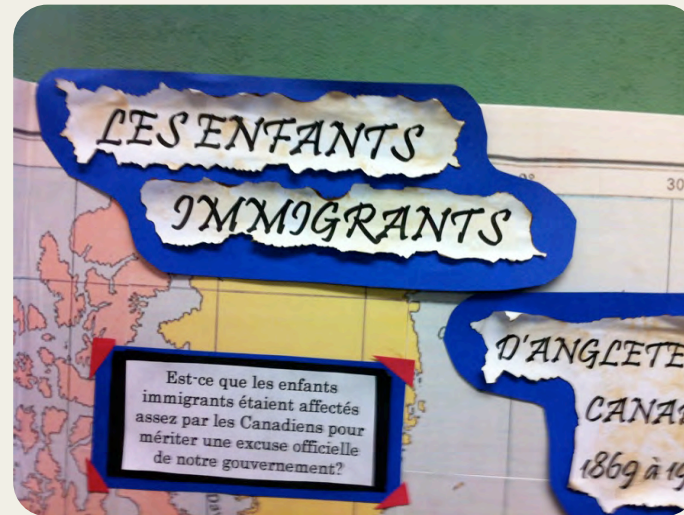 LES ENFANTS
IMMIGRANTS
30
Est-ce que les enfants
immigrants étaient affectés
assez par les Canadiens pour
mériter une excuse officielle
de notre gouvernement?
D'ANGLETE
CANA
1869 à 19